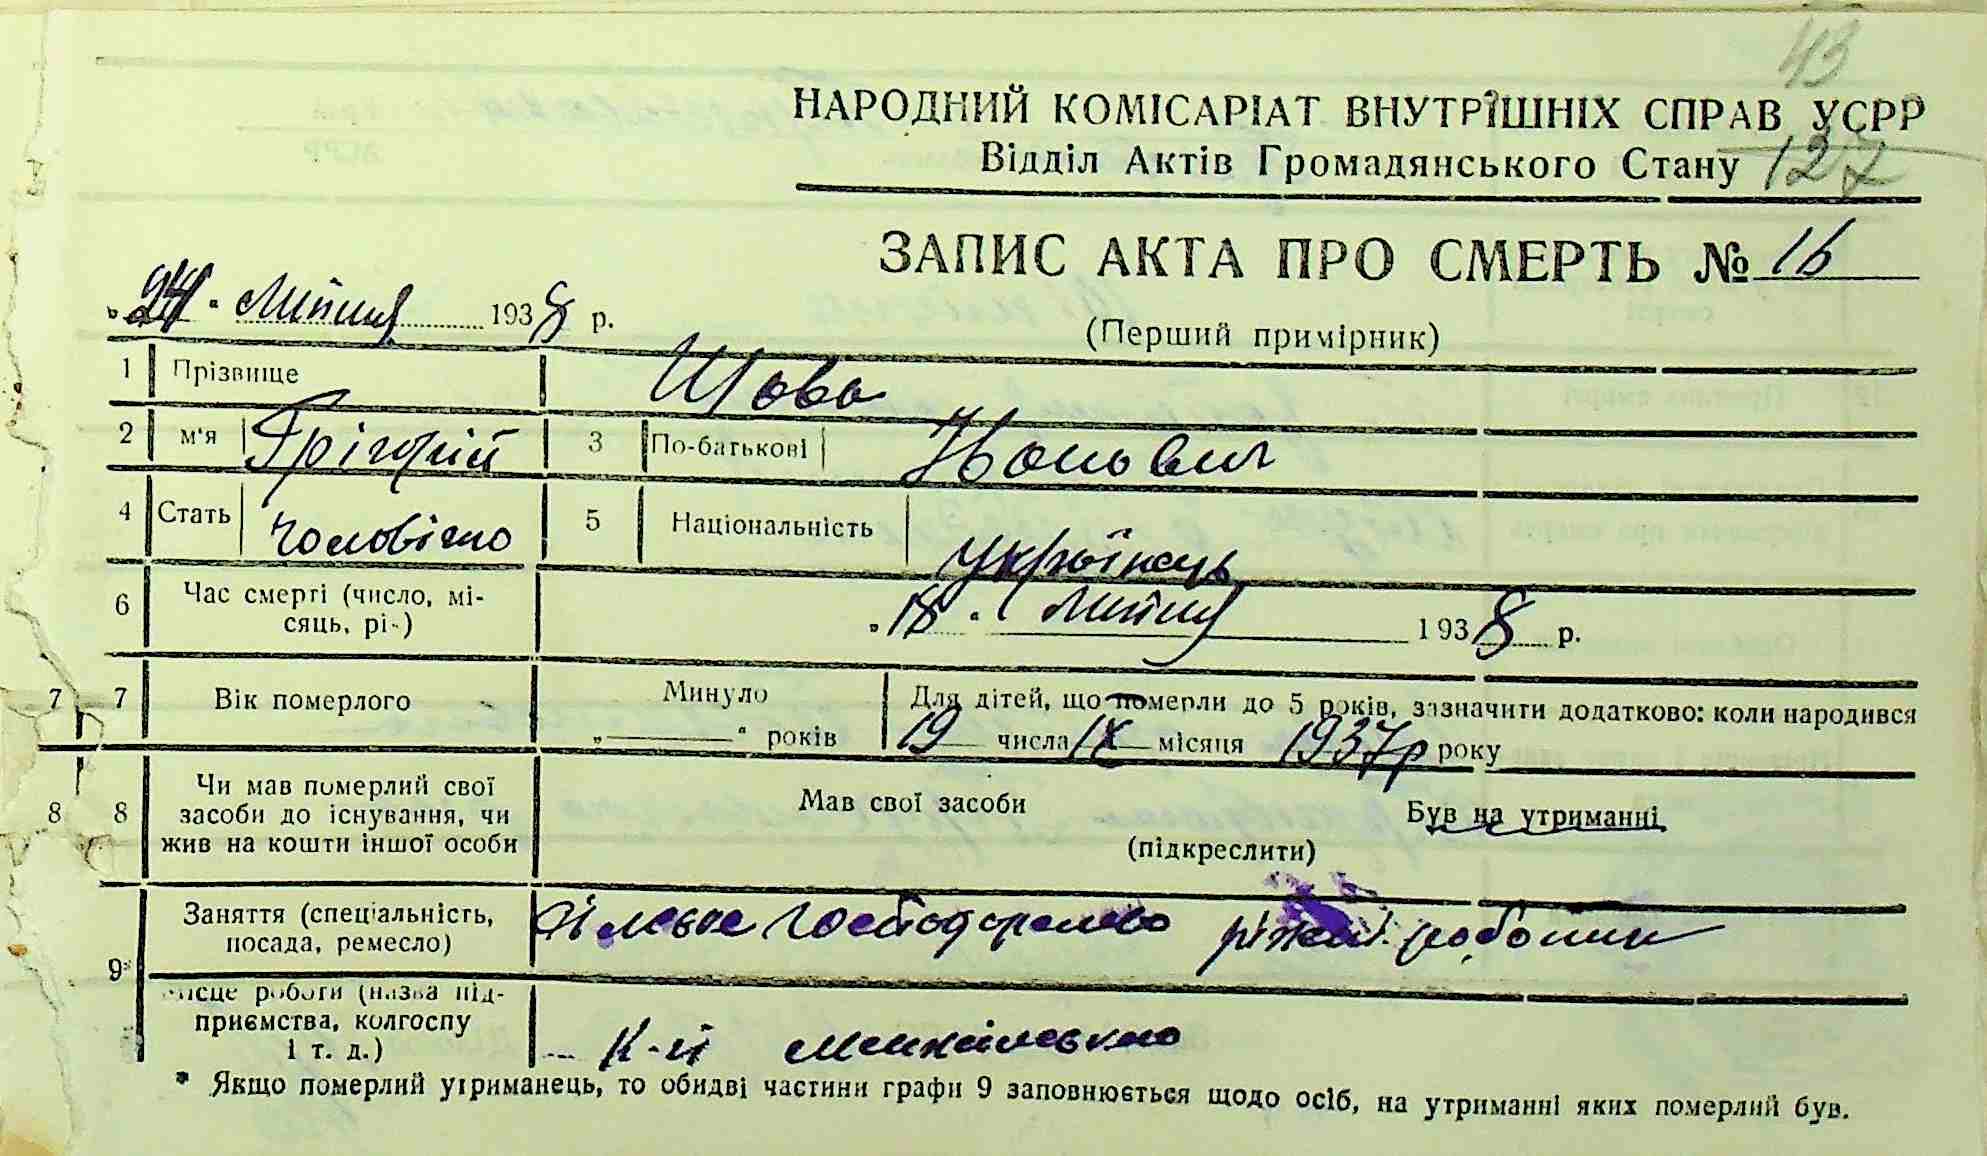 43
НАРОДНИЙ КОМІСАРІАТ ВНУТРІШНІХ СПРАВ УСРР
Відділ Актів Громадянського Стану 127
ЗАПИС АКТА ПРО СМЕРТЬ № 16
„24“ Липня 1938 р.
(Перший примірник)
1 Прізвище Шова
2 м'я Григорій 3 По-батькові Іванович
4 Стать чоловічо 5 Національність українець
6 Час смерті (число, мі-
сяць, рі-) „18“ Липня 1938 р.
7 7 Вік померлого Минуло „—“ років Для дітей, що померли до 5 років, зазначити додатково: коли народився
19 числа IX місяця 1937р року
8 8 Чи мав померлий свої
засоби до існування, чи
жив на кошти іншої особи
Мав свої засоби Був на утриманні
(підкреслити)
9* Заняття (спеціальність,
посада, ремесло) сільське господарство різни робочий
місце роботи (назва під-
приємства, колгоспу
і т. д.) К-п
* Якщо померлий утриманець, то обидві частини графи 9 заповнюється щодо осіб, на утриманні яких померлий був.